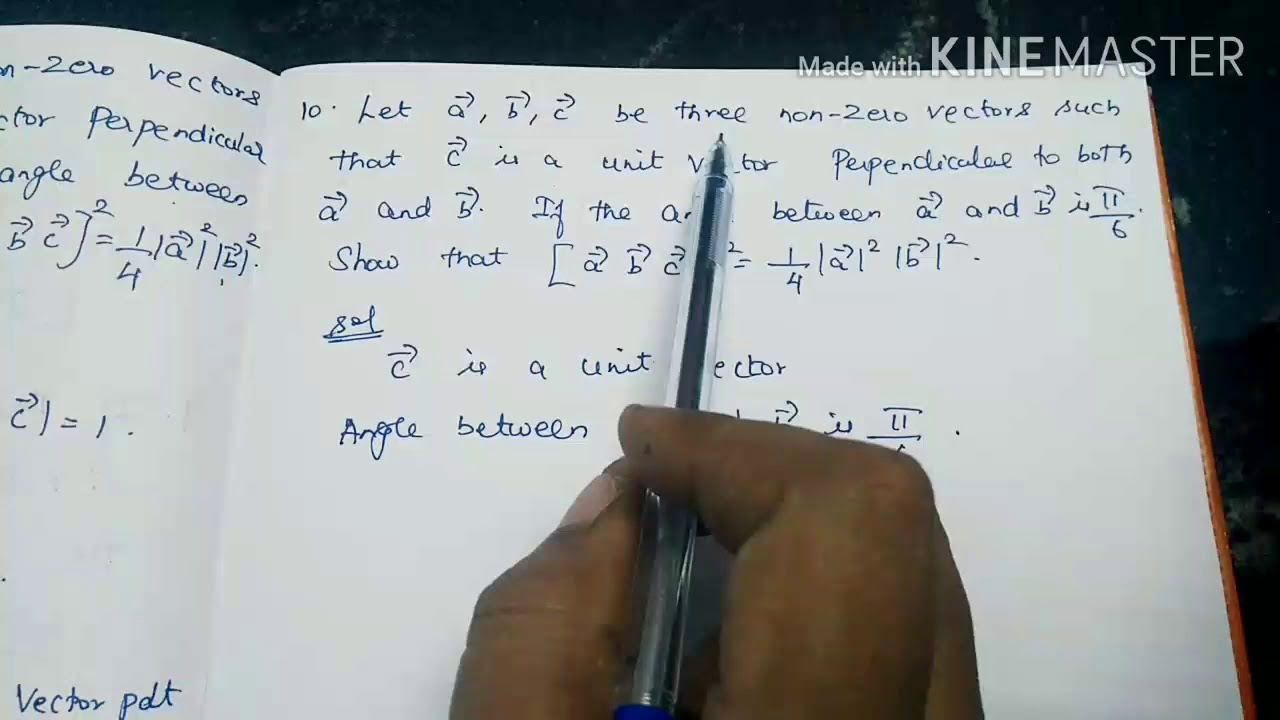 Made with KINEMASTER
n-Zero vectors
ctor Perpendicular
angle between
b⃗ c⃗]² = 1/4 |a⃗|² |b⃗|².
c⃗| = 1.
Vector pdt
10. Let a⃗, b⃗, c⃗ be three non-zero vectors such
that c⃗ is a unit Perpendicular to both
a⃗ and b⃗. If the between a⃗ and b⃗ is π/6.
Show that [a⃗ b⃗ c⃗ ² = 1/4 |a⃗|² |b⃗|².
sol
c⃗ is a unit ector
Angle between b⃗ is π .